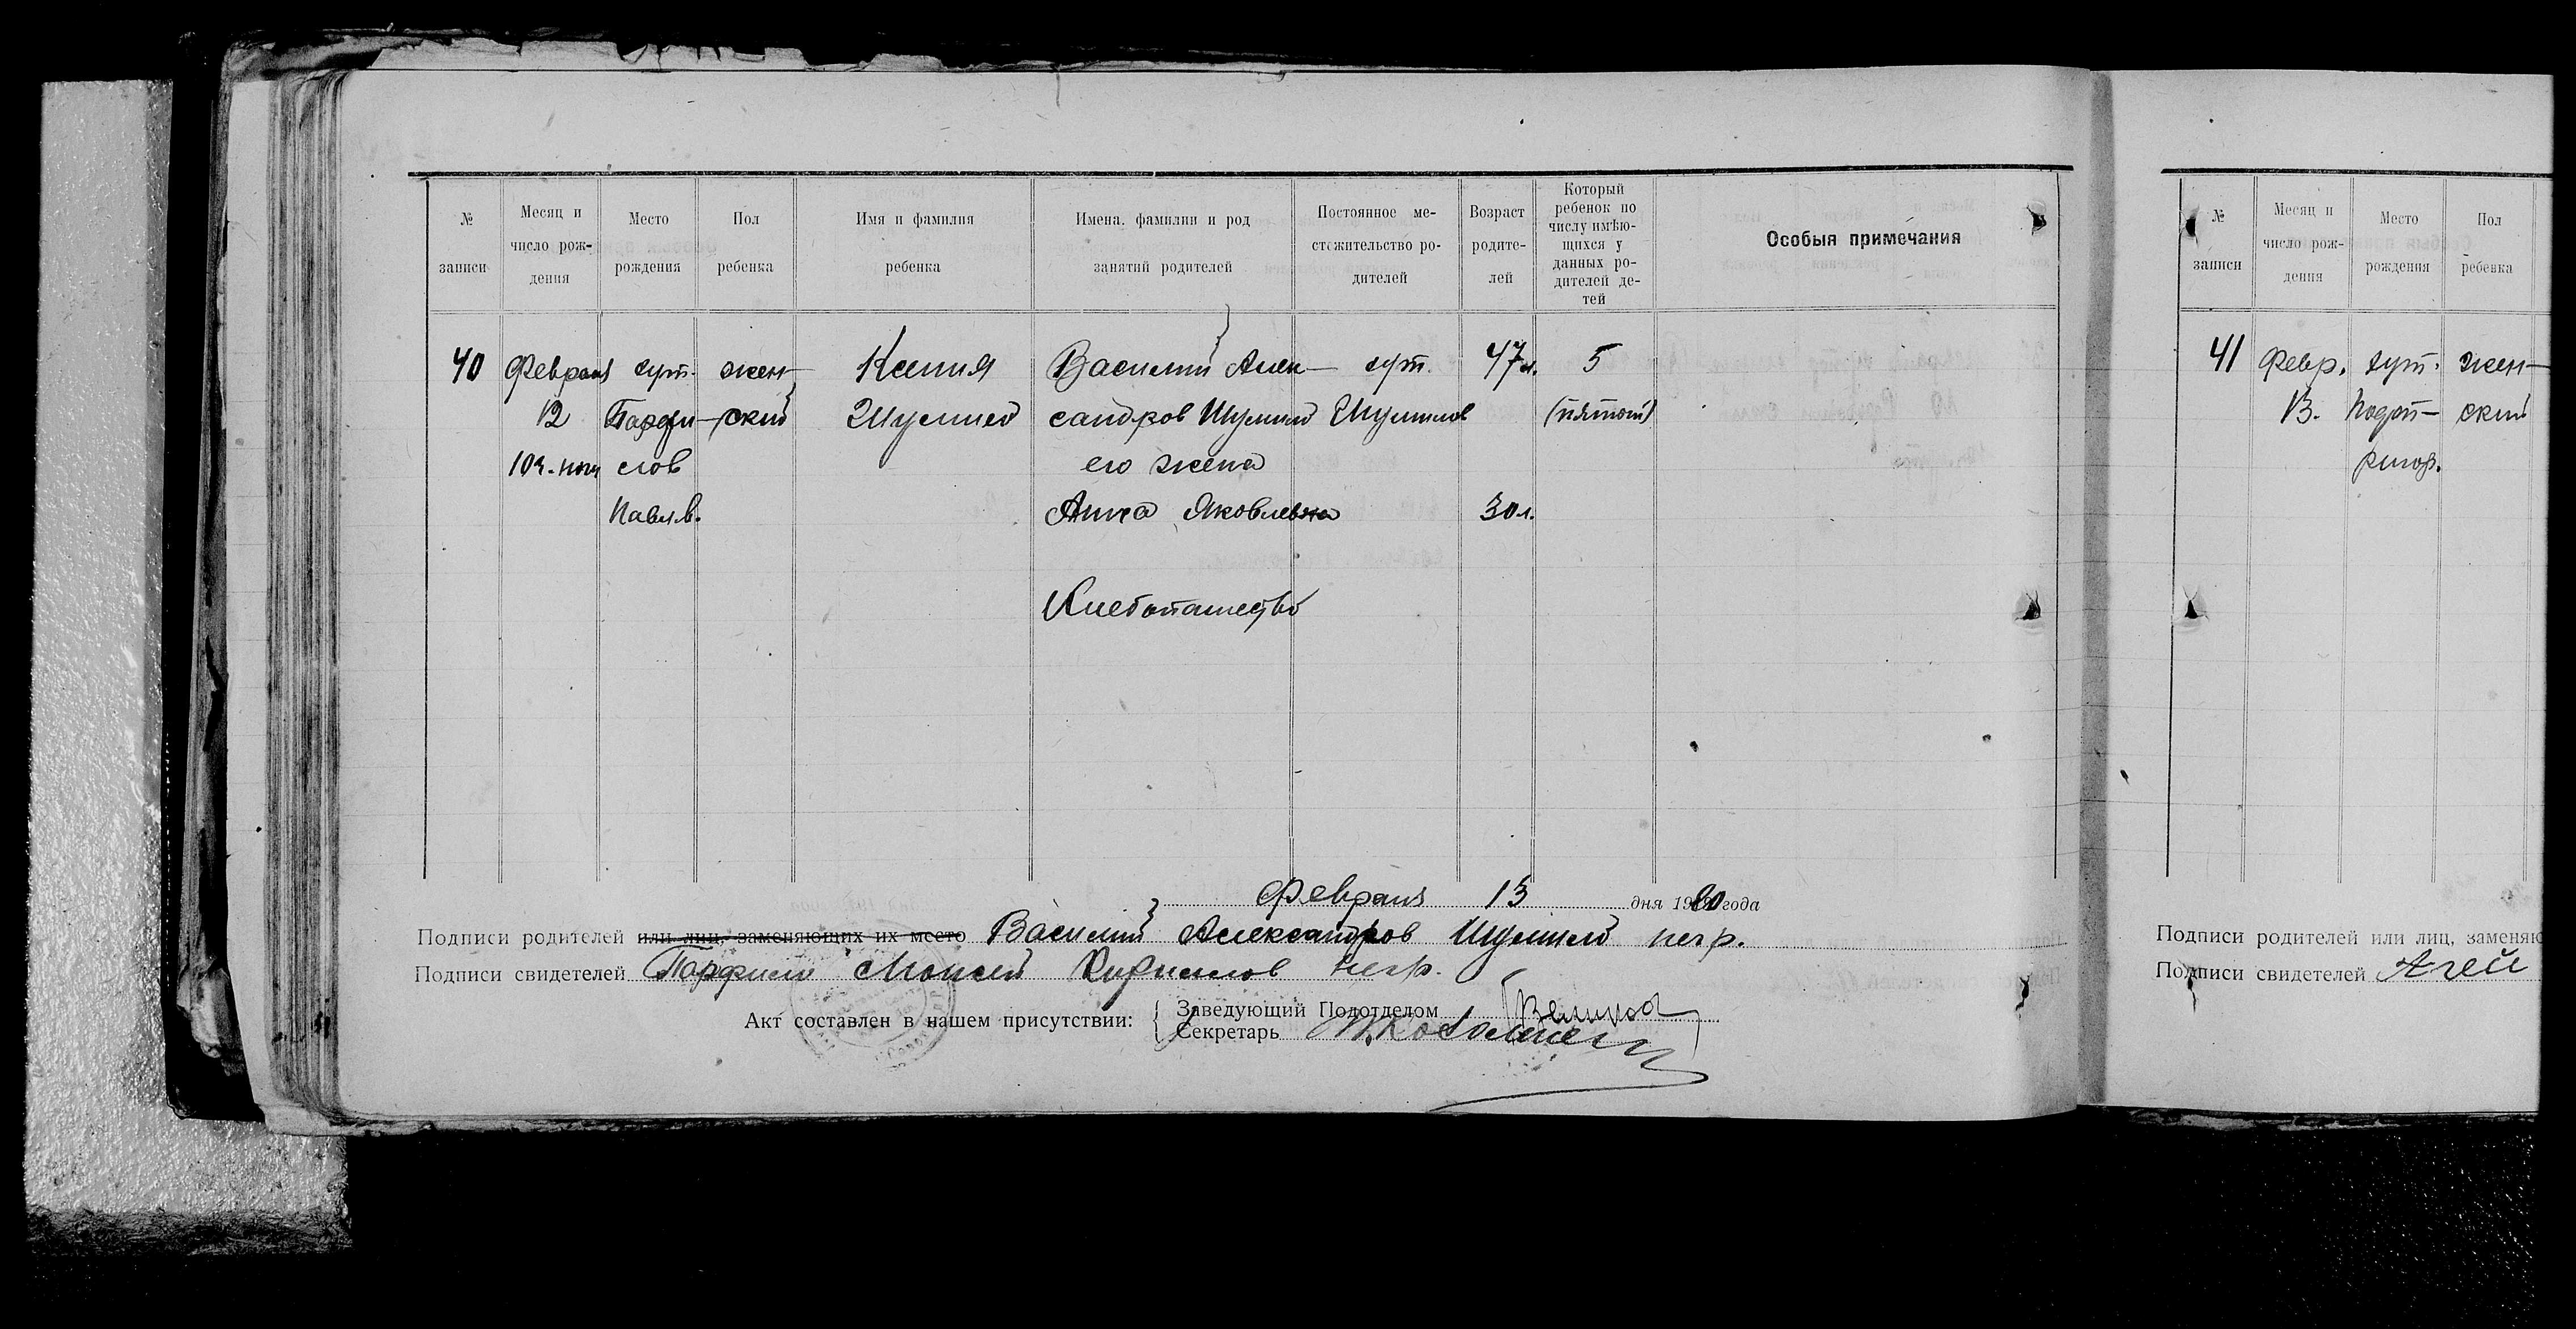 № записи
Месяц и число рождения
Место рождения
Пол ребенка
Имя и фамилия ребенка
Имена, фамилии и род занятий родителей
Постоянное местожительство родителей
Возраст родителей
Который ребенок по числу имѣющихся у данных родителей детей
Особыя примечания
40 Февраля хут. жен- Ксения Василий Алек- хут. 47 л. 5
12 Парфи- ский Шумило сандров Шумило Шумилов (пятой)
10 ч. ночи лов его жена
Павл.в. Анна Яковлевна 30 л.
Хлебопашество
Февраля 13 дня 1920 года
Подписи родителей или лиц, заменяющих их место Василий Александров Шумило негр.
Подписи свидетелей Парфило Моисей негр.
Акт составлен в нашем присутствии:
Заведующий Подотделом
Секретарь
№ записи
Месяц и число рождения
Место рождения
Пол ребенка
41 Февр. хут. жен-
13. ский
Подписи родителей или лиц, заменяю
Подписи свидетелей Агей